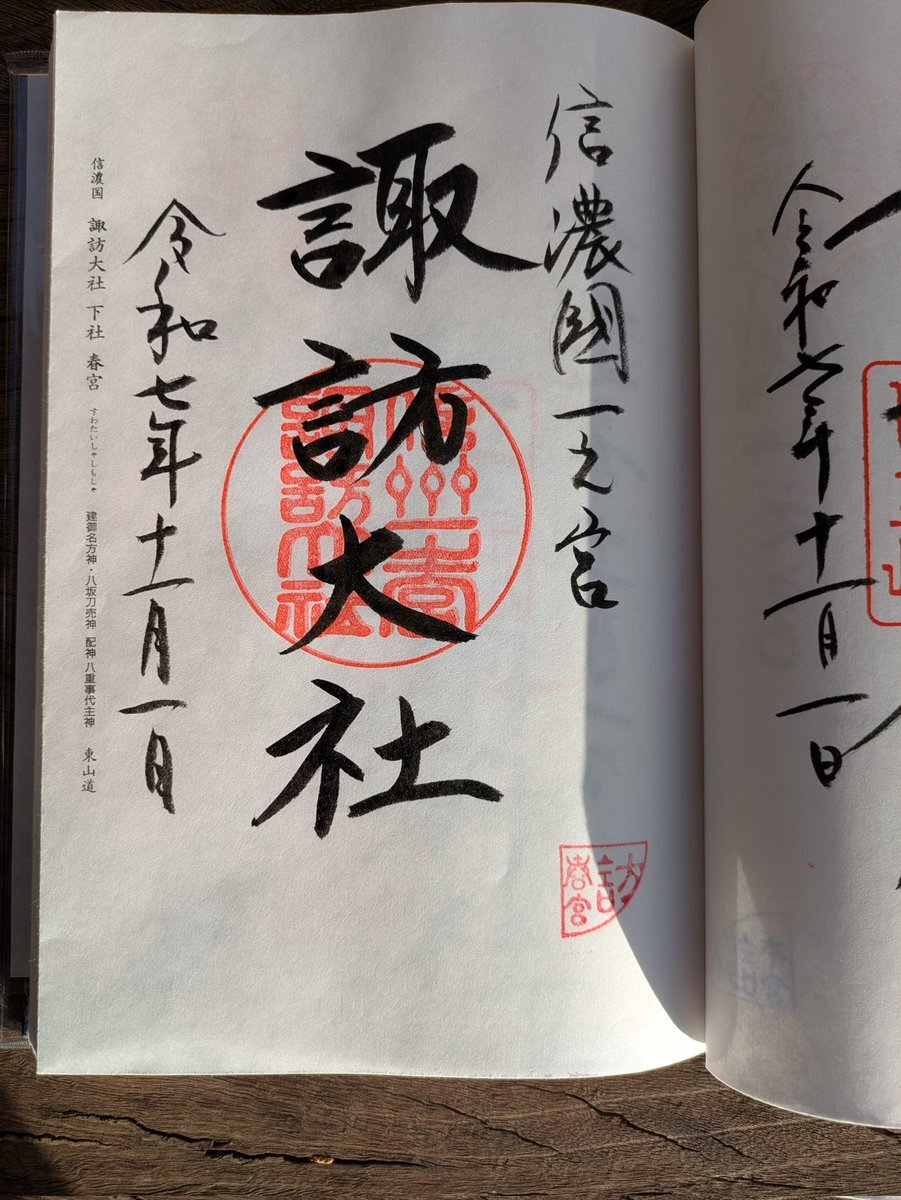 令和七年十一月一日
信濃國一之宮
諏訪大社
信州一宮
諏訪大社
訪
春宮
令和七年十一月一日
信濃国 諏訪大社 下社 春宮 すわたいしゃしもしゃ 建御名方神・八坂刀売神 配神 八重事代主神 東山道